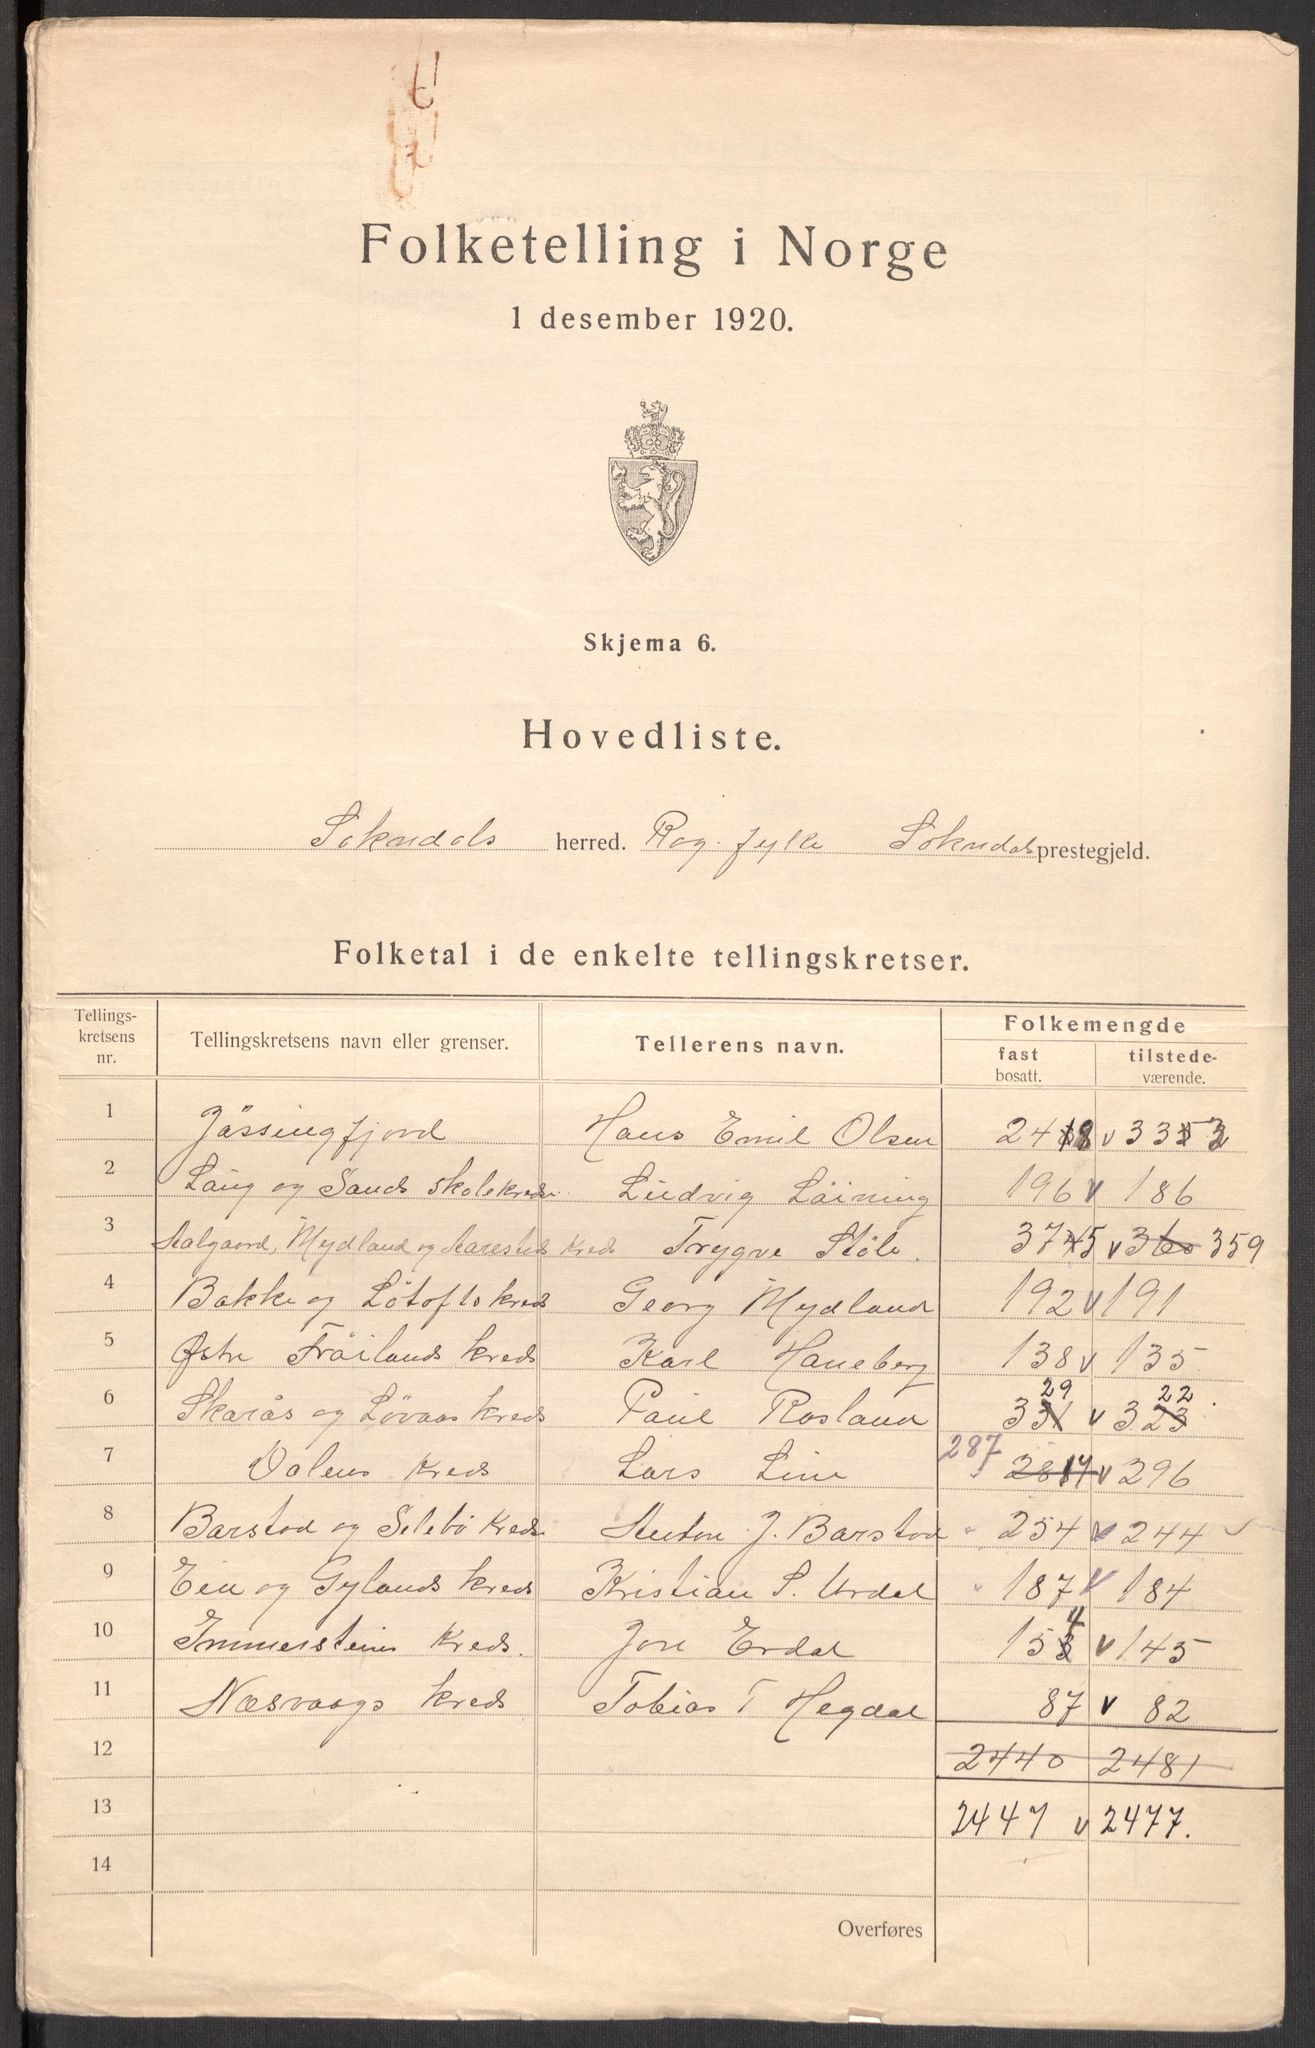 Folketelling i Norge
1 desember 1920.
Skjema 6.
Hovedliste.
Sokndals herred. Rog. fylke Sokndals prestegjeld.
Folketal i de enkelte tellingskretser.
Tellings-kretsens nr. Tellingskretsens navn eller grenser. Tellerens navn. Folkemengde
fast bosatt. tilstede-værende.
1 Jössingfjord Hans Emil Olsen 248 v 332
2 Läug og Sands skolekreds Ludvig Löining 196 v 186
3 Aalgaard, Mydland og Aarestad Kreds Trygve Stöle. 375 v 360 359
4 Bakke og Lötofte kreds Georg Mydland 192 v 191
5 Østre Fröilands kreds Karl Haneberg 138 v 135
6 Skarås og Løvaas kreds Paul Rosland 331 29 v 323 22
7 Dalens Kreds Lars Line 287 v 296
8 Barstad og Selebö Kreds Anton J. Barstad 254 v 244
9 Eia og Gylands kreds Kristian S. Urdal 187 v 184
10 Immerstein Kreds. Jon Erdal 153 4 v 145
11 Næsvaags kreds Tobias T Hegdal 87 v 82
12 2440 2481
13 2447 v 2477.
14
Overføres